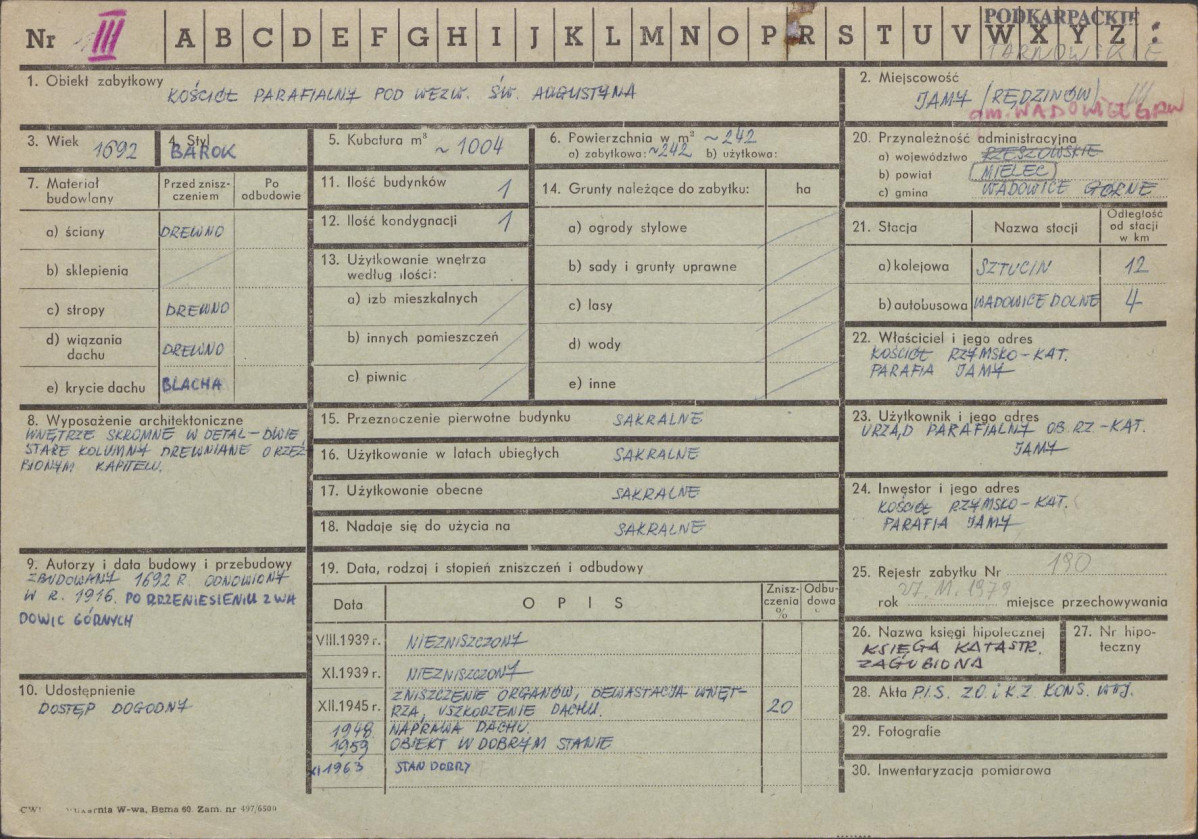 Nr III A B C D E F G H I J K L M N O P R S T U V W X Y Z
PODKARPACKIE
TARNOWSKIE
1. Obiekt zabytkowy
KOŚCIÓŁ PARAFIALNY POD WEZW. ŚW. AUGUSTYNA
2. Miejscowość
JAMY (RĘDZINÓW)
gm. WADOWICE GRN
3. Wiek 1692
4. Styl
BAROK
5. Kubatura m³ ~1004
6. Powierzchnia w m² ~242
a) zabytkowa: ~242 b) użytkowa:
20. Przynależność administracyjna
a) województwo RZESZOWSKIE
b) powiat MIELEC
c) gmina WADOWICE GÓRNE
7. Materiał budowlany
Przed znisz-
czeniem
Po
odbudowie
a) ściany DREWNO
b) sklepienia
c) stropy DREWNO
d) wiązania
dachu DREWNO
e) krycie dachu BLACHA
11. Ilość budynków 1
12. Ilość kondygnacji 1
13. Użytkowanie wnętrza
według ilości:
a) izb mieszkalnych
b) innych pomieszczeń
c) piwnic
14. Grunty należące do zabytku: ha
a) ogrody stylowe
b) sady i grunty uprawne
c) lasy
d) wody
e) inne
21. Stacja Nazwa stacji
Odległość
od stacji
w km
a) kolejowa SZTUCIN 12
b) autobusowa WADOWICE DOLNE 4
22. Właściciel i jego adres
KOŚCIÓŁ RZYMSKO-KAT.
PARAFIA JAMY
8. Wyposażenie architektoniczne
WNĘTRZE SKROMNE W DETAL-DWIE
STARE KOLUMNY DREWNIANE O RZEŹ
BIONYM KAPITELU.
15. Przeznaczenie pierwotne budynku SAKRALNE
16. Użytkowanie w latach ubiegłych SAKRALNE
17. Użytkowanie obecne SAKRALNE
18. Nadaje się do użycia na SAKRALNE
23. Użytkownik i jego adres
URZĄD PARAFIALNY OB. RZ.-KAT.
JAMY
24. Inwestor i jego adres
KOŚCIÓŁ RZYMSKO-KAT.
PARAFIA JAMY
9. Autorzy i data budowy i przebudowy
ZBUDOWANY 1692 R. ODNOWIONY
W R. 1916. PO PRZENIESIENIU Z WA
DOWIC GÓRNYCH
10. Udostępnienie
DOSTĘP DOGODNY
19. Data, rodzaj i stopień zniszczeń i odbudowy
Data OPIS
Znisz-
czenia
%
Odbu-
dowa
VIII.1939 r. NIEZNISZCZONY
XI.1939 r. NIEZNISZCZONY
XII.1945 r. ZNISZCZENIE ORGANÓW, DEWASTACJA WNĘT-
RZA, USZKODZENIE DACHU. 20
1948 NAPRAWA DACHU.
1959 OBIEKT W DOBRYM STANIE
XI 1963 STAN DOBRY
25. Rejestr zabytku Nr 190
rok 1979 miejsce przechowywania
26. Nazwa księgi hipotecznej
KSIĘGA KATASTR.
ZAGUBIONA
27. Nr hipo-
teczny
28. Akta P.I.S. Z.O. i K.Z. KONS. WOJ.
29. Fotografie
30. Inwentaryzacja pomiarowa
W-wa, Bema 60. Zam. nr 497/6500